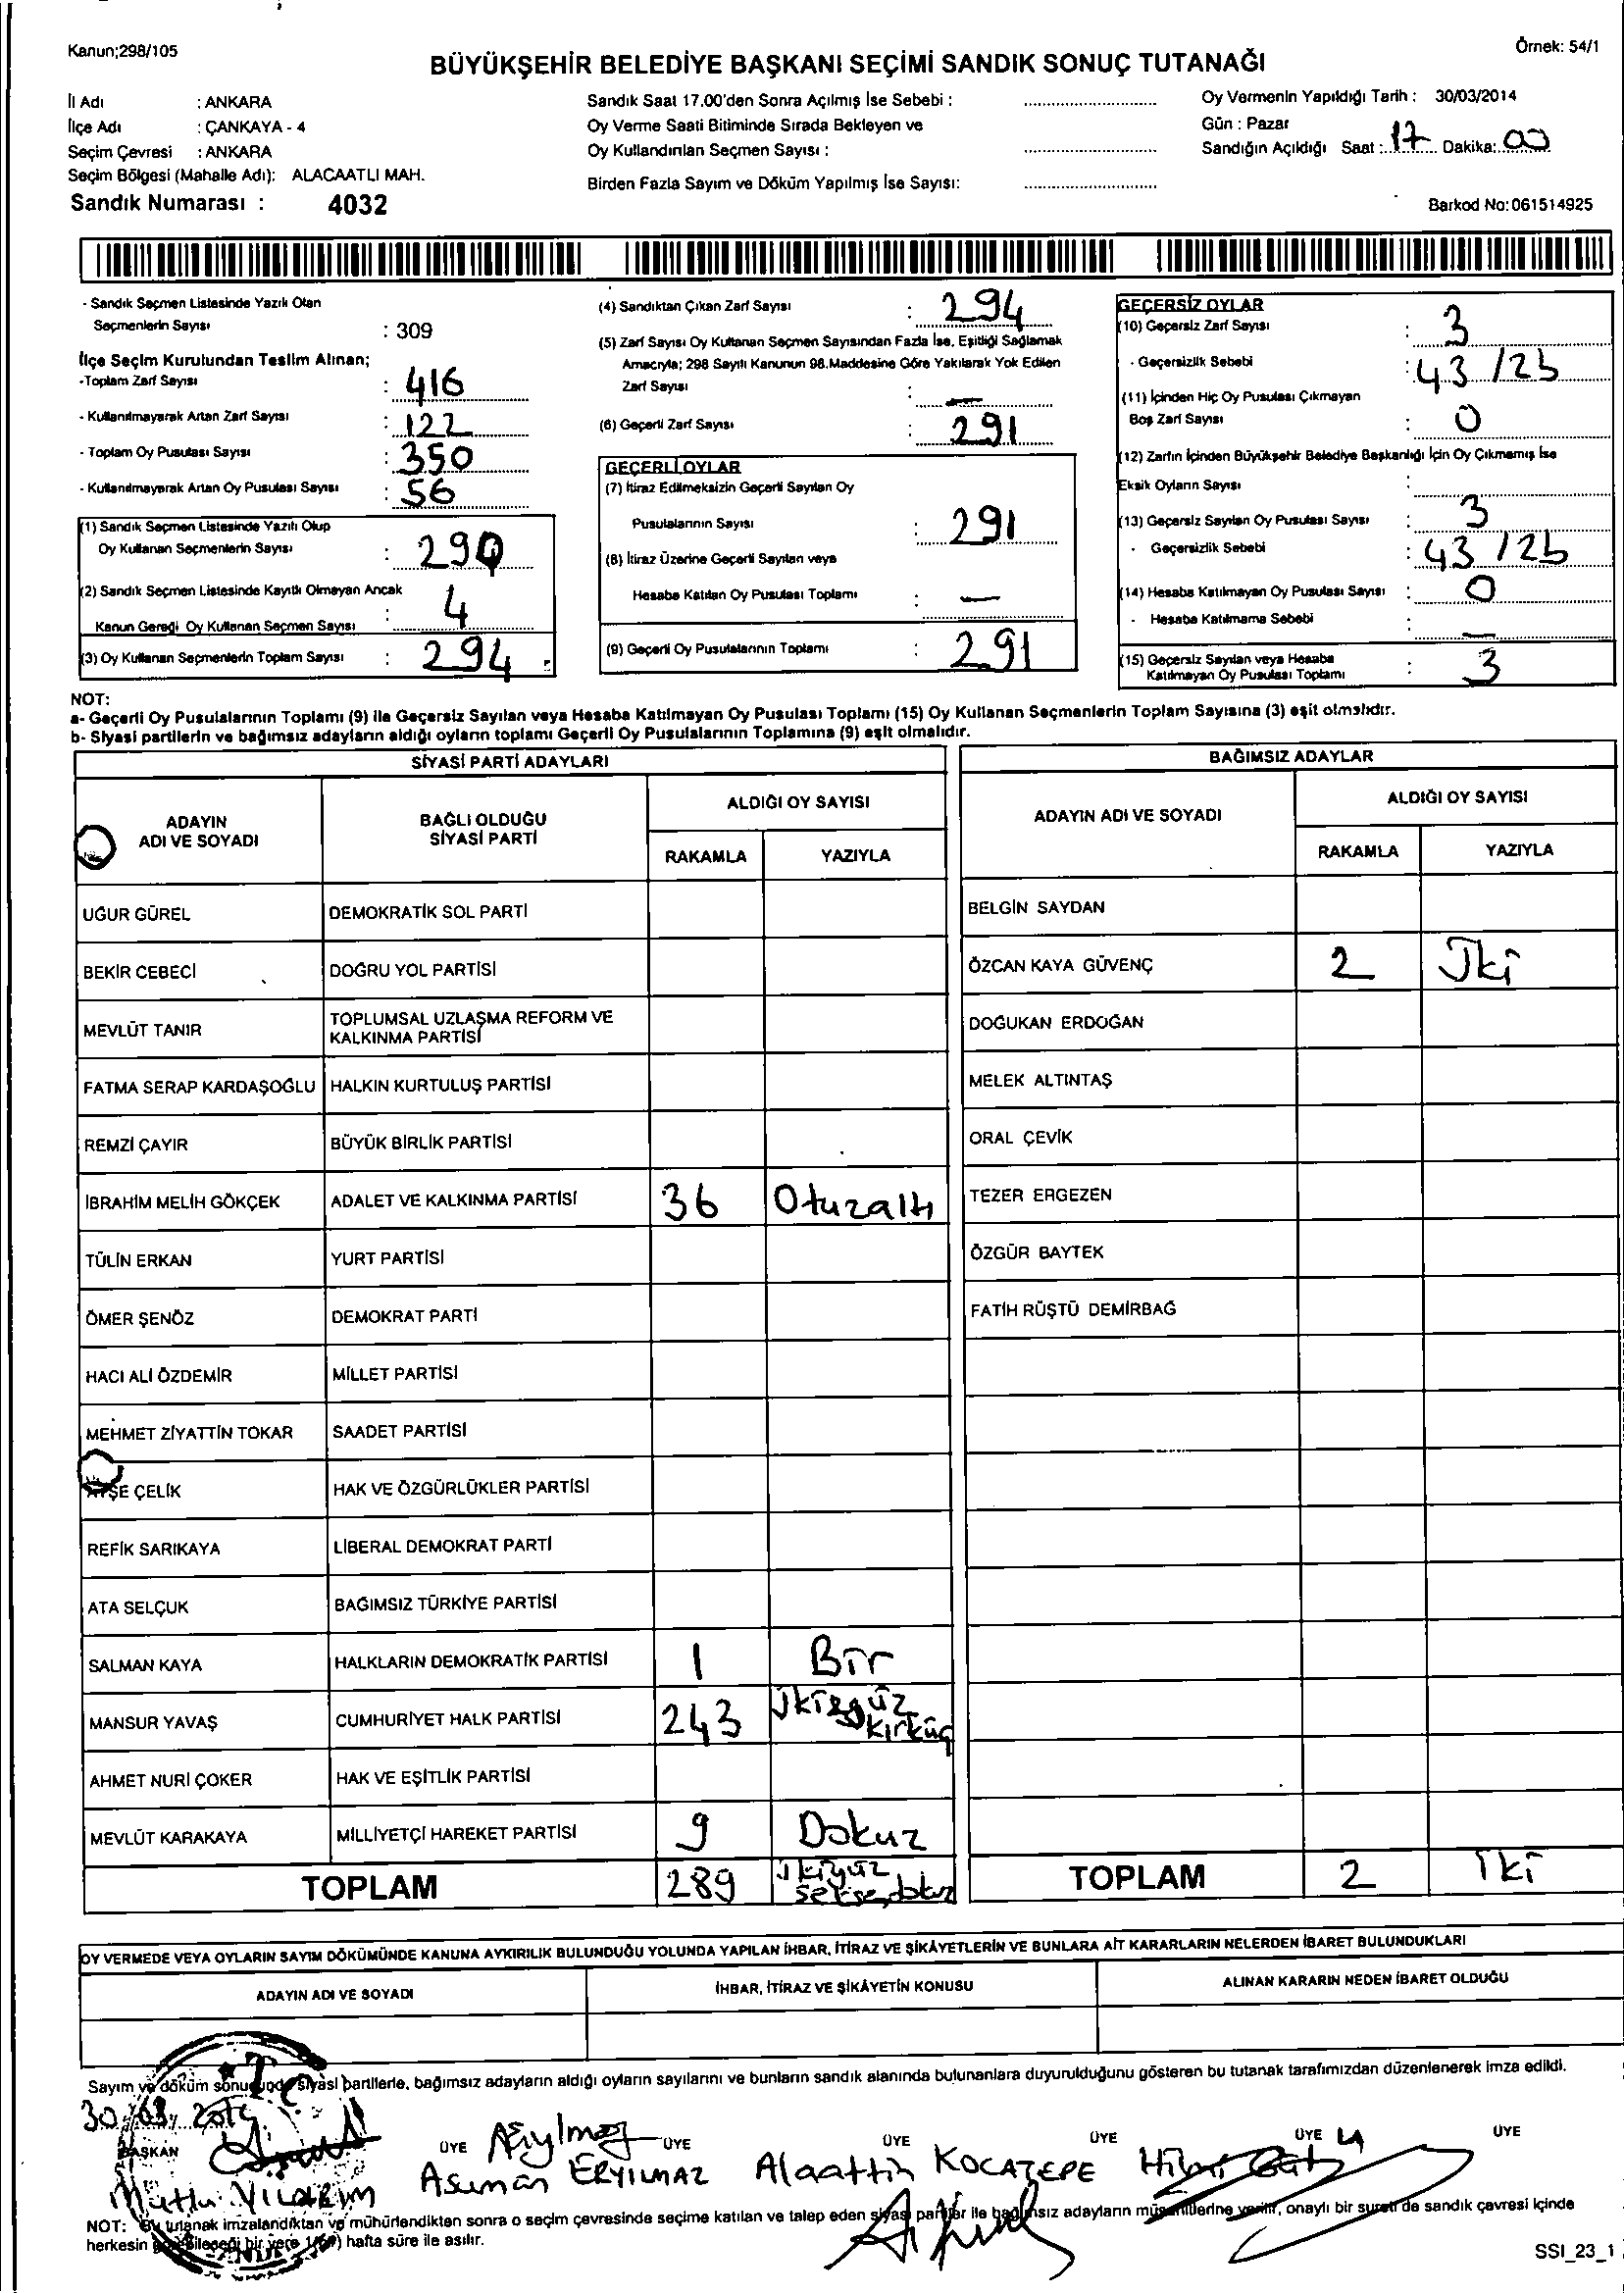 Kanun;298/105
Örnek: 54/1
BÜYÜKŞEHİR BELEDİYE BAŞKANI SEÇİMİ SANDIK SONUÇ TUTANAĞI
İl Adı : ANKARA
İlçe Adı : ÇANKAYA - 4
Seçim Çevresi : ANKARA
Seçim Bölgesi (Mahalle Adı): ALACAATLI MAH.
Sandık Numarası : 4032
Sandık Saat 17.00'den Sonra Açılmış İse Sebebi :
Oy Verme Saati Bitiminde Sırada Bekleyen ve
Oy Kullandırılan Seçmen Sayısı :
Birden Fazla Sayım ve Döküm Yapılmış İse Sayısı:
Oy Vermenin Yapıldığı Tarih : 30/03/2014
Gün : Pazar
Sandığın Açıldığı Saat : 17 Dakika: 00
Barkod No:061514925
- Sandık Seçmen Listesinde Yazılı Olan
Seçmenlerin Sayısı : 309
İlçe Seçim Kurulundan Teslim Alınan;
-Toplam Zarf Sayısı : 416
- Kullanılmayarak Artan Zarf Sayısı : 122
- Toplam Oy Pusulası Sayısı : 350
- Kullanılmayarak Artan Oy Pusulası Sayısı : 56
(1) Sandık Seçmen Listesinde Yazılı Olup
Oy Kullanan Seçmenlerin Sayısı : 290
(2) Sandık Seçmen Listesinde Kayıtlı Olmayan Ancak
Kanun Gereği Oy Kullanan Seçmen Sayısı : 4
(3) Oy Kullanan Seçmenlerin Toplam Sayısı : 294
(4) Sandıktan Çıkan Zarf Sayısı : 294
(5) Zarf Sayısı Oy Kullanan Seçmen Sayısından Fazla İse, Eşitliği Sağlamak
Amacıyla; 298 Sayılı Kanunun 98.Maddesine Göre Yakılarak Yok Edilen
Zarf Sayısı : —
(6) Geçerli Zarf Sayısı : 291
GEÇERLİ OYLAR
(7) İtiraz Edilmeksizin Geçerli Sayılan Oy
Pusulalarının Sayısı : 291
(8) İtiraz Üzerine Geçerli Sayılan veya
Hesaba Katılan Oy Pusulası Toplamı : —
(9) Geçerli Oy Pusulalarının Toplamı : 291
GEÇERSİZ OYLAR
(10) Geçersiz Zarf Sayısı : 3
- Geçersizlik Sebebi : 43 /2b
(11) İçinden Hiç Oy Pusulası Çıkmayan
Boş Zarf Sayısı : 0
(12) Zarfın İçinden Büyükşehir Belediye Başkanlığı İçin Oy Çıkmamış İse
Eksik Oyların Sayısı :
(13) Geçersiz Sayılan Oy Pusulası Sayısı : 3
- Geçersizlik Sebebi : 43 /2b
(14) Hesaba Katılmayan Oy Pusulası Sayısı : 0
- Hesaba Katılmama Sebebi : —
(15) Geçersiz Sayılan veya Hesaba
Katılmayan Oy Pusulası Toplamı : 3
NOT:
a- Geçerli Oy Pusulalarının Toplamı (9) ile Geçersiz Sayılan veya Hesaba Katılmayan Oy Pusulası Toplamı (15) Oy Kullanan Seçmenlerin Toplam Sayısına (3) eşit olmalıdır.
b- Siyasi partilerin ve bağımsız adayların aldığı oyların toplamı Geçerli Oy Pusulalarının Toplamına (9) eşit olmalıdır.
SİYASİ PARTİ ADAYLARI
ADAYIN ADI VE SOYADI BAĞLI OLDUĞU SİYASİ PARTİ ALDIĞI OY SAYISI
RAKAMLA YAZIYLA
UĞUR GÜREL DEMOKRATİK SOL PARTİ
BEKİR CEBECİ DOĞRU YOL PARTİSİ
MEVLÜT TANIR TOPLUMSAL UZLAŞMA REFORM VE KALKINMA PARTİSİ
FATMA SERAP KARDAŞOĞLU HALKIN KURTULUŞ PARTİSİ
REMZİ ÇAYIR BÜYÜK BİRLİK PARTİSİ
İBRAHİM MELİH GÖKÇEK ADALET VE KALKINMA PARTİSİ 36 Otuzaltı
TÜLİN ERKAN YURT PARTİSİ
ÖMER ŞENÖZ DEMOKRAT PARTİ
HACI ALİ ÖZDEMİR MİLLET PARTİSİ
MEHMET ZİYATTİN TOKAR SAADET PARTİSİ
AYŞE ÇELİK HAK VE ÖZGÜRLÜKLER PARTİSİ
REFİK SARIKAYA LİBERAL DEMOKRAT PARTİ
ATA SELÇUK BAĞIMSIZ TÜRKİYE PARTİSİ
SALMAN KAYA HALKLARIN DEMOKRATİK PARTİSİ 1 Bir
MANSUR YAVAŞ CUMHURİYET HALK PARTİSİ 243 İkiyüz kırküç
AHMET NURİ ÇOKER HAK VE EŞİTLİK PARTİSİ
MEVLÜT KARAKAYA MİLLİYETÇİ HAREKET PARTİSİ 9 Dokuz
TOPLAM 289 ikiyüz seksendokuz
BAĞIMSIZ ADAYLAR
ADAYIN ADI VE SOYADI ALDIĞI OY SAYISI
RAKAMLA YAZIYLA
BELGİN SAYDAN
ÖZCAN KAYA GÜVENÇ 2 İki
DOĞUKAN ERDOĞAN
MELEK ALTINTAŞ
ORAL ÇEVİK
TEZER ERGEZEN
ÖZGÜR BAYTEK
FATİH RÜŞTÜ DEMİRBAĞ
TOPLAM 2 İki
OY VERMEDE VEYA OYLARIN SAYIM DÖKÜMÜNDE KANUNA AYKIRILIK BULUNDUĞU YOLUNDA YAPILAN İHBAR, İTİRAZ VE ŞİKÂYETLERİN VE BUNLARA AİT KARARLARIN NELERDEN İBARET BULUNDUKLARI
ADAYIN ADI VE SOYADI İHBAR, İTİRAZ VE ŞİKÂYETİN KONUSU ALINAN KARARIN NEDEN İBARET OLDUĞU
Sayım ve döküm sonucunda siyasi partilerle, bağımsız adayların aldığı oyların sayılarını ve bunların sandık alanında bulunanlara duyurulduğunu gösteren bu tutanak tarafımızdan düzenlenerek imza edildi.
30/03/2014
BAŞKAN ÜYE ÜYE ÜYE ÜYE ÜYE ÜYE
Mutlu YILDIRIM Asuman ERYILMAZ Alaattin KOCATEPE
NOT: Bu tutanak imzalandıktan ve mühürlendikten sonra o seçim çevresinde seçime katılan ve talep eden siyasi partiler ile bağımsız adayların müşahitlerine verilir, onaylı bir sureti de sandık çevresi içinde
herkesin görebileceği bir yere 1 (bir) hafta süre ile asılır.
SSI_23_1